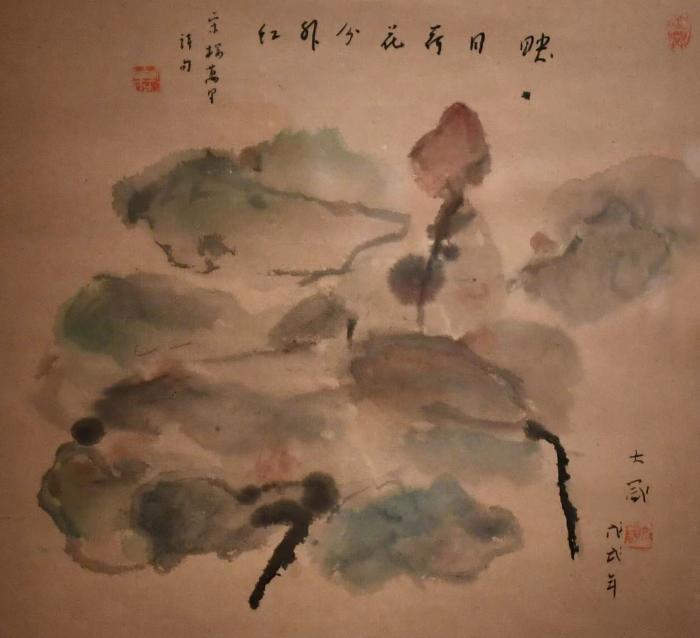 映日荷花分外红
宋杨萬里
诗句
大
戊戌年